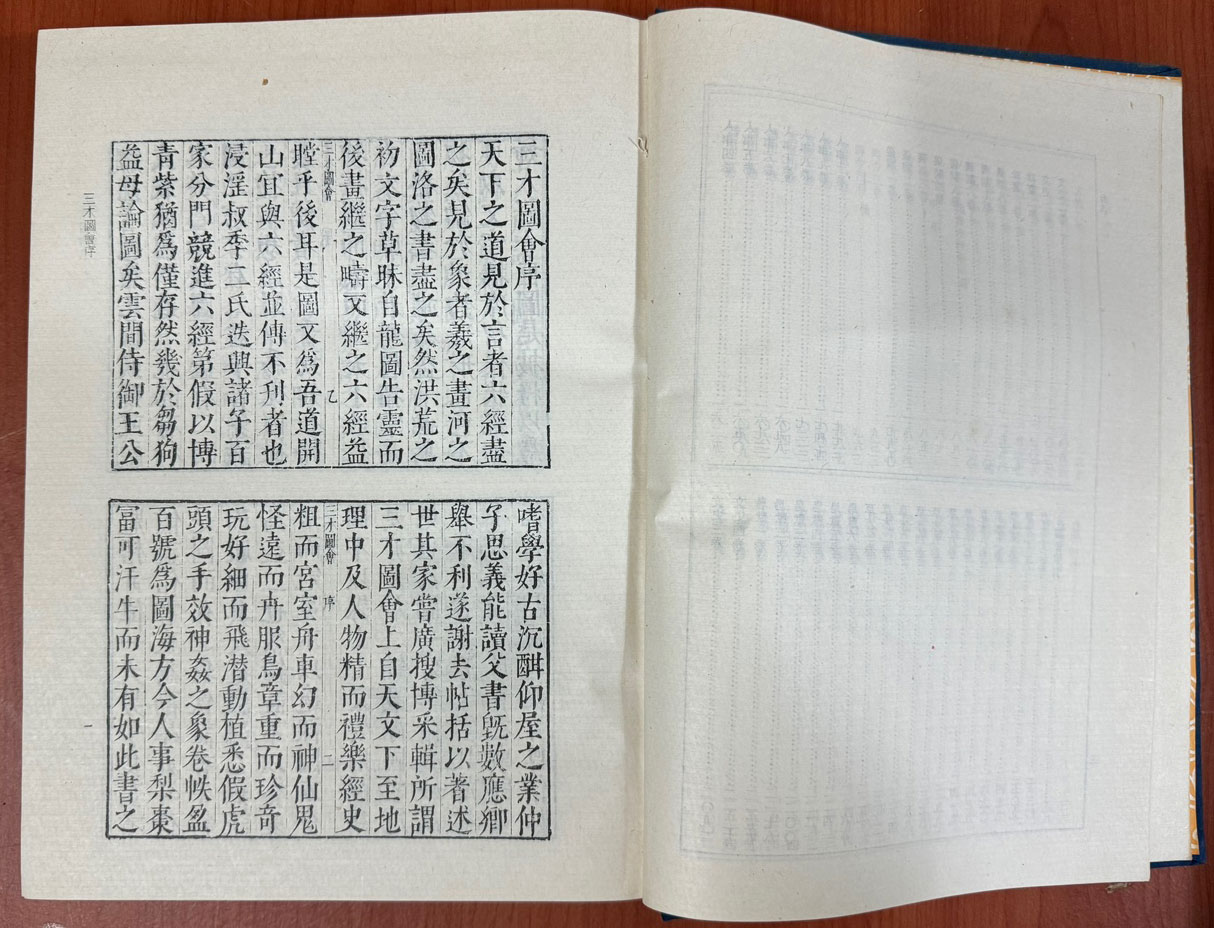 三才圖會序
天下之道見於言者六經盡
之矣見於象者羲之畫河之
圖洛之書盡之矣然洪荒之
初文字草昧自龍圖告靈而
後畫繼之疇又繼之六經益
三才圖會
瞠乎後耳是圖又爲吾道開
山宜與六經並傳不刋者也
浸淫叔季二氏迭興諸子百
家分門競進六經第假以博
青紫猶爲僅存然幾於芻狗
益毋論圖矣雲間侍御王公
嗜學好古沉酣仰屋之業仲
子思義能讀父書旣數應鄉
舉不利遂謝去帖括以著述
世其家嘗廣搜博采輯所謂
三才圖會上自天文下至地
理中及人物精而禮樂經史
三才圖會 序 二
粗而宮室舟車幻而神仙鬼
怪遠而卉服鳥章重而珍奇
玩好細而飛潜動植悉假虎
頭之手效神姦之象卷帙盈
百號爲圖海方今人事梨棗
富可汗牛而未有如此書之
三才圖會序
一